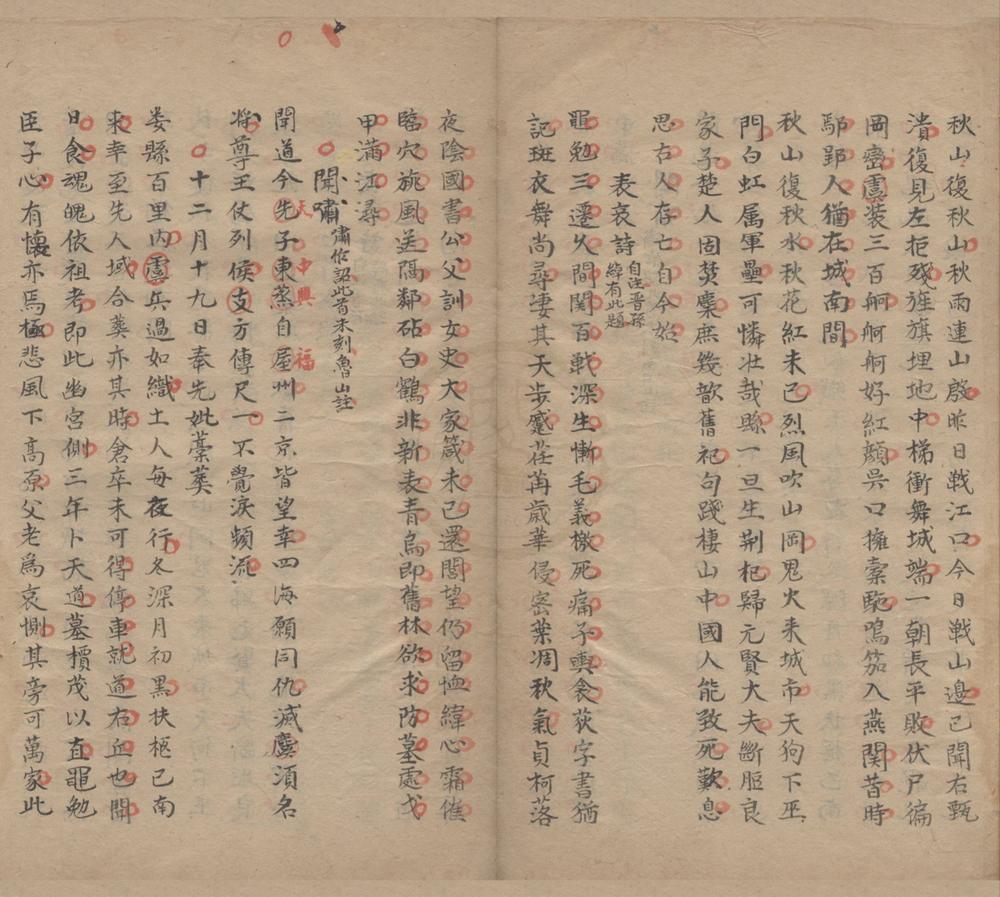 秋山復秋山秋雨連山殷昨日戰江口今日戰山邊已聞右甄
潰復見左拒殘旌旗埋地中梯衝舞城端一朝長平敗伏尸徧
岡巒虜裝三百舸舸舸好紅顏吳口擁橐駝鳴笳入燕關昔時
鄢郢人猶在城南間
秋山復秋水秋花紅未已烈風吹山岡鬼火来城市天狗下巫
門白虹属軍壘可憐壯哉縣一旦生荆杞歸元賢大夫斷脰良
家子楚人固焚麋庶幾歆舊祀句踐棲山中國人能致死歎息
思古人存亡自今始
表哀詩自注晋孫綽有此題
黽勉三遷久間関百戰深生慚毛義檄死痛子輿衾荻字書猶
記斑衣舞尚尋淒其天步蹙荏苒歲華侵密葉凋秋氣貞柯落
夜陰國書公父訓女史大家箴未已還閭望仍留恤緯心霜催
臨穴旐風送隔鄰砧白鶴非新表青烏即舊林欲求防墓處戈
甲滿江潯
聞嘯嘯作詔此首未刻魯山註
聞道今天先子中興東蒸自福屋州二京皆望幸四海願同仇滅麌須名
将尊王仗列侯支方傳尺一不覺淚頻流
十二月十九日奉先妣藁葬
婁縣百里内虜兵過如織土人每夜行冬深月初黑扶柩已南
来幸至先人域合葬亦其時倉卒未可得停車就道右丘也聞
日食魂魄依祖考即此幽宮側三年卜天道墓檟茂以直黽勉
臣子心有懷亦焉極悲風下高原父老爲哀惻其旁可萬家此